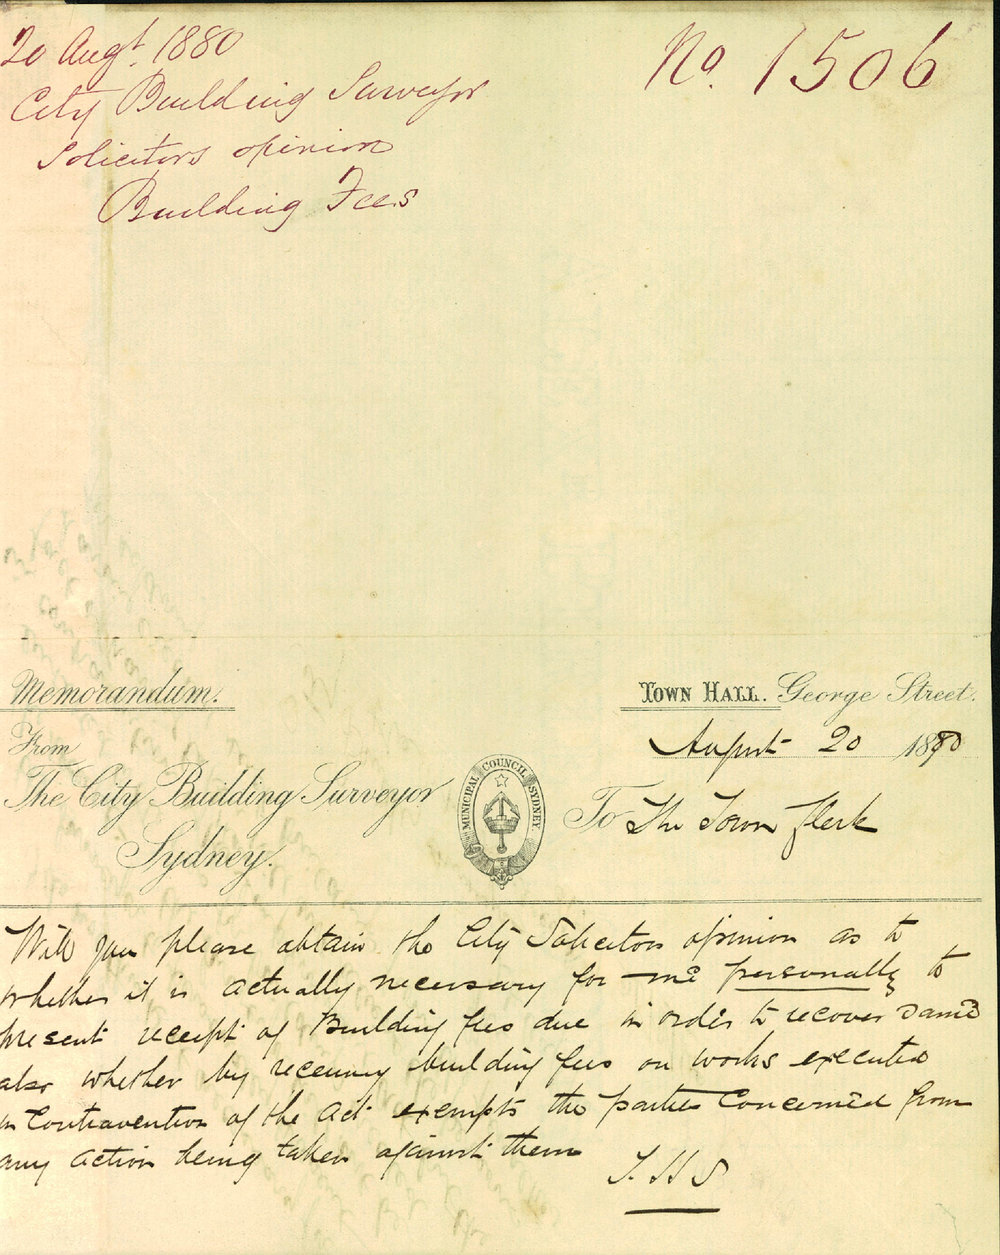 20 Augt. 1880
No. 1506
City Building Surveyor
Solicitors opinion
Building Fees
Memorandum.
TOWN HALL. George Street.
August 20 1880
From
The City Building Surveyor
Sydney.
MUNICIPAL COUNCIL SYDNEY
To The Town Clerk
Will you please obtain the City Solicitors opinion as to
whether it is actually necessary for me personally to
present receipt of Building fees due in order to recover same
also whether by receiving building fees on works executed
in Contravention of the Act exempts the parties Concerned from
any action being taken against them